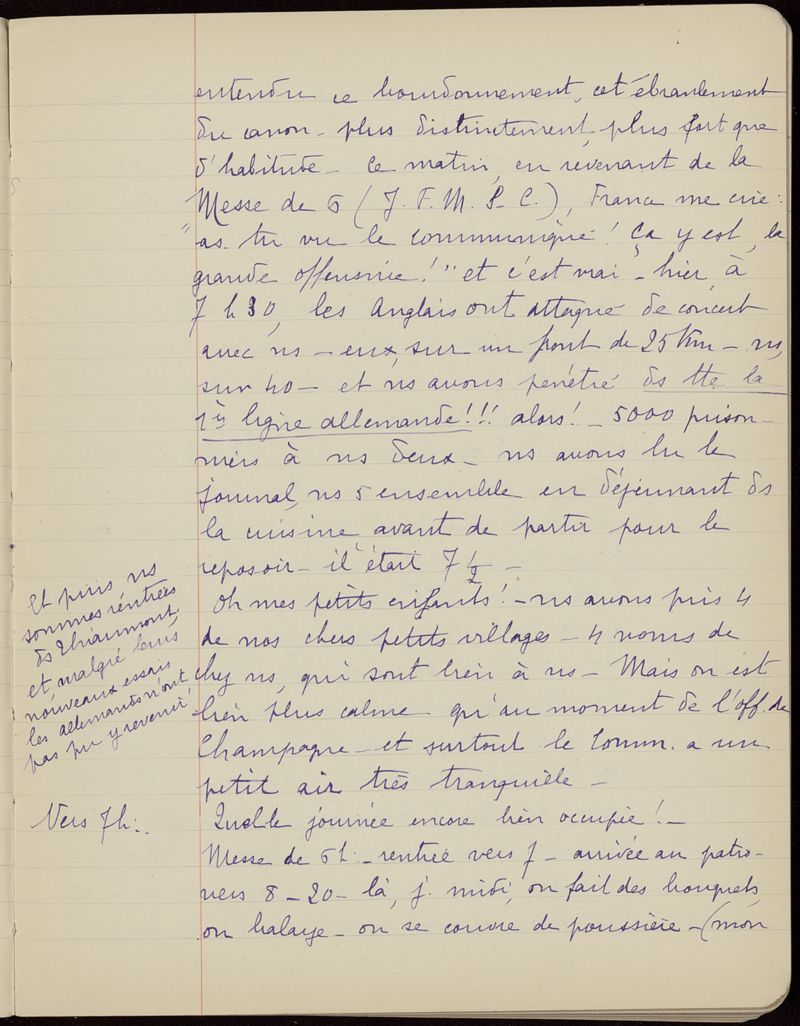 entendre ce bourdonnement, cet ébranlement
du canon - plus distinctement, plus fort que
d'habitude - Ce matin, en revenant de la
Messe de 6 (J. F. M. S. C.), France me crie :
"as-tu vu le communiqué ! Ça y est, la
grande offensive !" et c'est vrai - hier, à
7 h 30, les Anglais ont attaqué de concert
avec ns - eux, sur un front de 25 Km - ns,
sur 40 - et ns avons pénétré ds tte la
1ère ligne allemande !!! alors ! - 5000 prison-
niers à ns deux - ns avons lu le
journal, ns 5 ensemble en déjeunant ds
la cuisine avant de partir pour le
reposoir - il était 7 1/2 -
Oh mes petits enfants ! - ns avons pris 4
de nos chers petits villages - 4 noms de
chez ns, qui sont bien à ns - Mais on est
bien plus calme qu'au moment de l'off. de
Champagne - et surtout le Comm. a un
petit air très tranquille -
Et puis ns
sommes rentrées
ds Thiaumont
et, malgré leurs
nouveaux essais
les allemands n'ont
pas pu y revenir !
Vers 7h :.
Quelle journée encore bien occupée ! -
Messe de 6h - rentrée vers 7 - arrivée au patro-
vers 8 - 20 - là, j. midi, on fait des bouquets,
on balaye - on se couvre de poussière - (mon